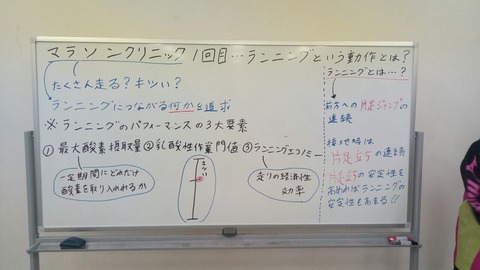 マラソンクリニック1回目…ランニングという動作とは?
たくさん走る?キツい?
ランニングにつながる何かを追求
※ランニングのパフォーマンスの3大要素
①最大酸素摂取量②乳酸性作業閾値③ランニングエコノミー
一定期間にどれだけ
酸素を取り入れれるか
きつい
走りの経済性
効率
ランニングとは…?
前方への片足ジャンプの
連続
接地時は
片足立ちの連続
片足立ちの安定性を
高めればランニングの
安定性も高まる!!